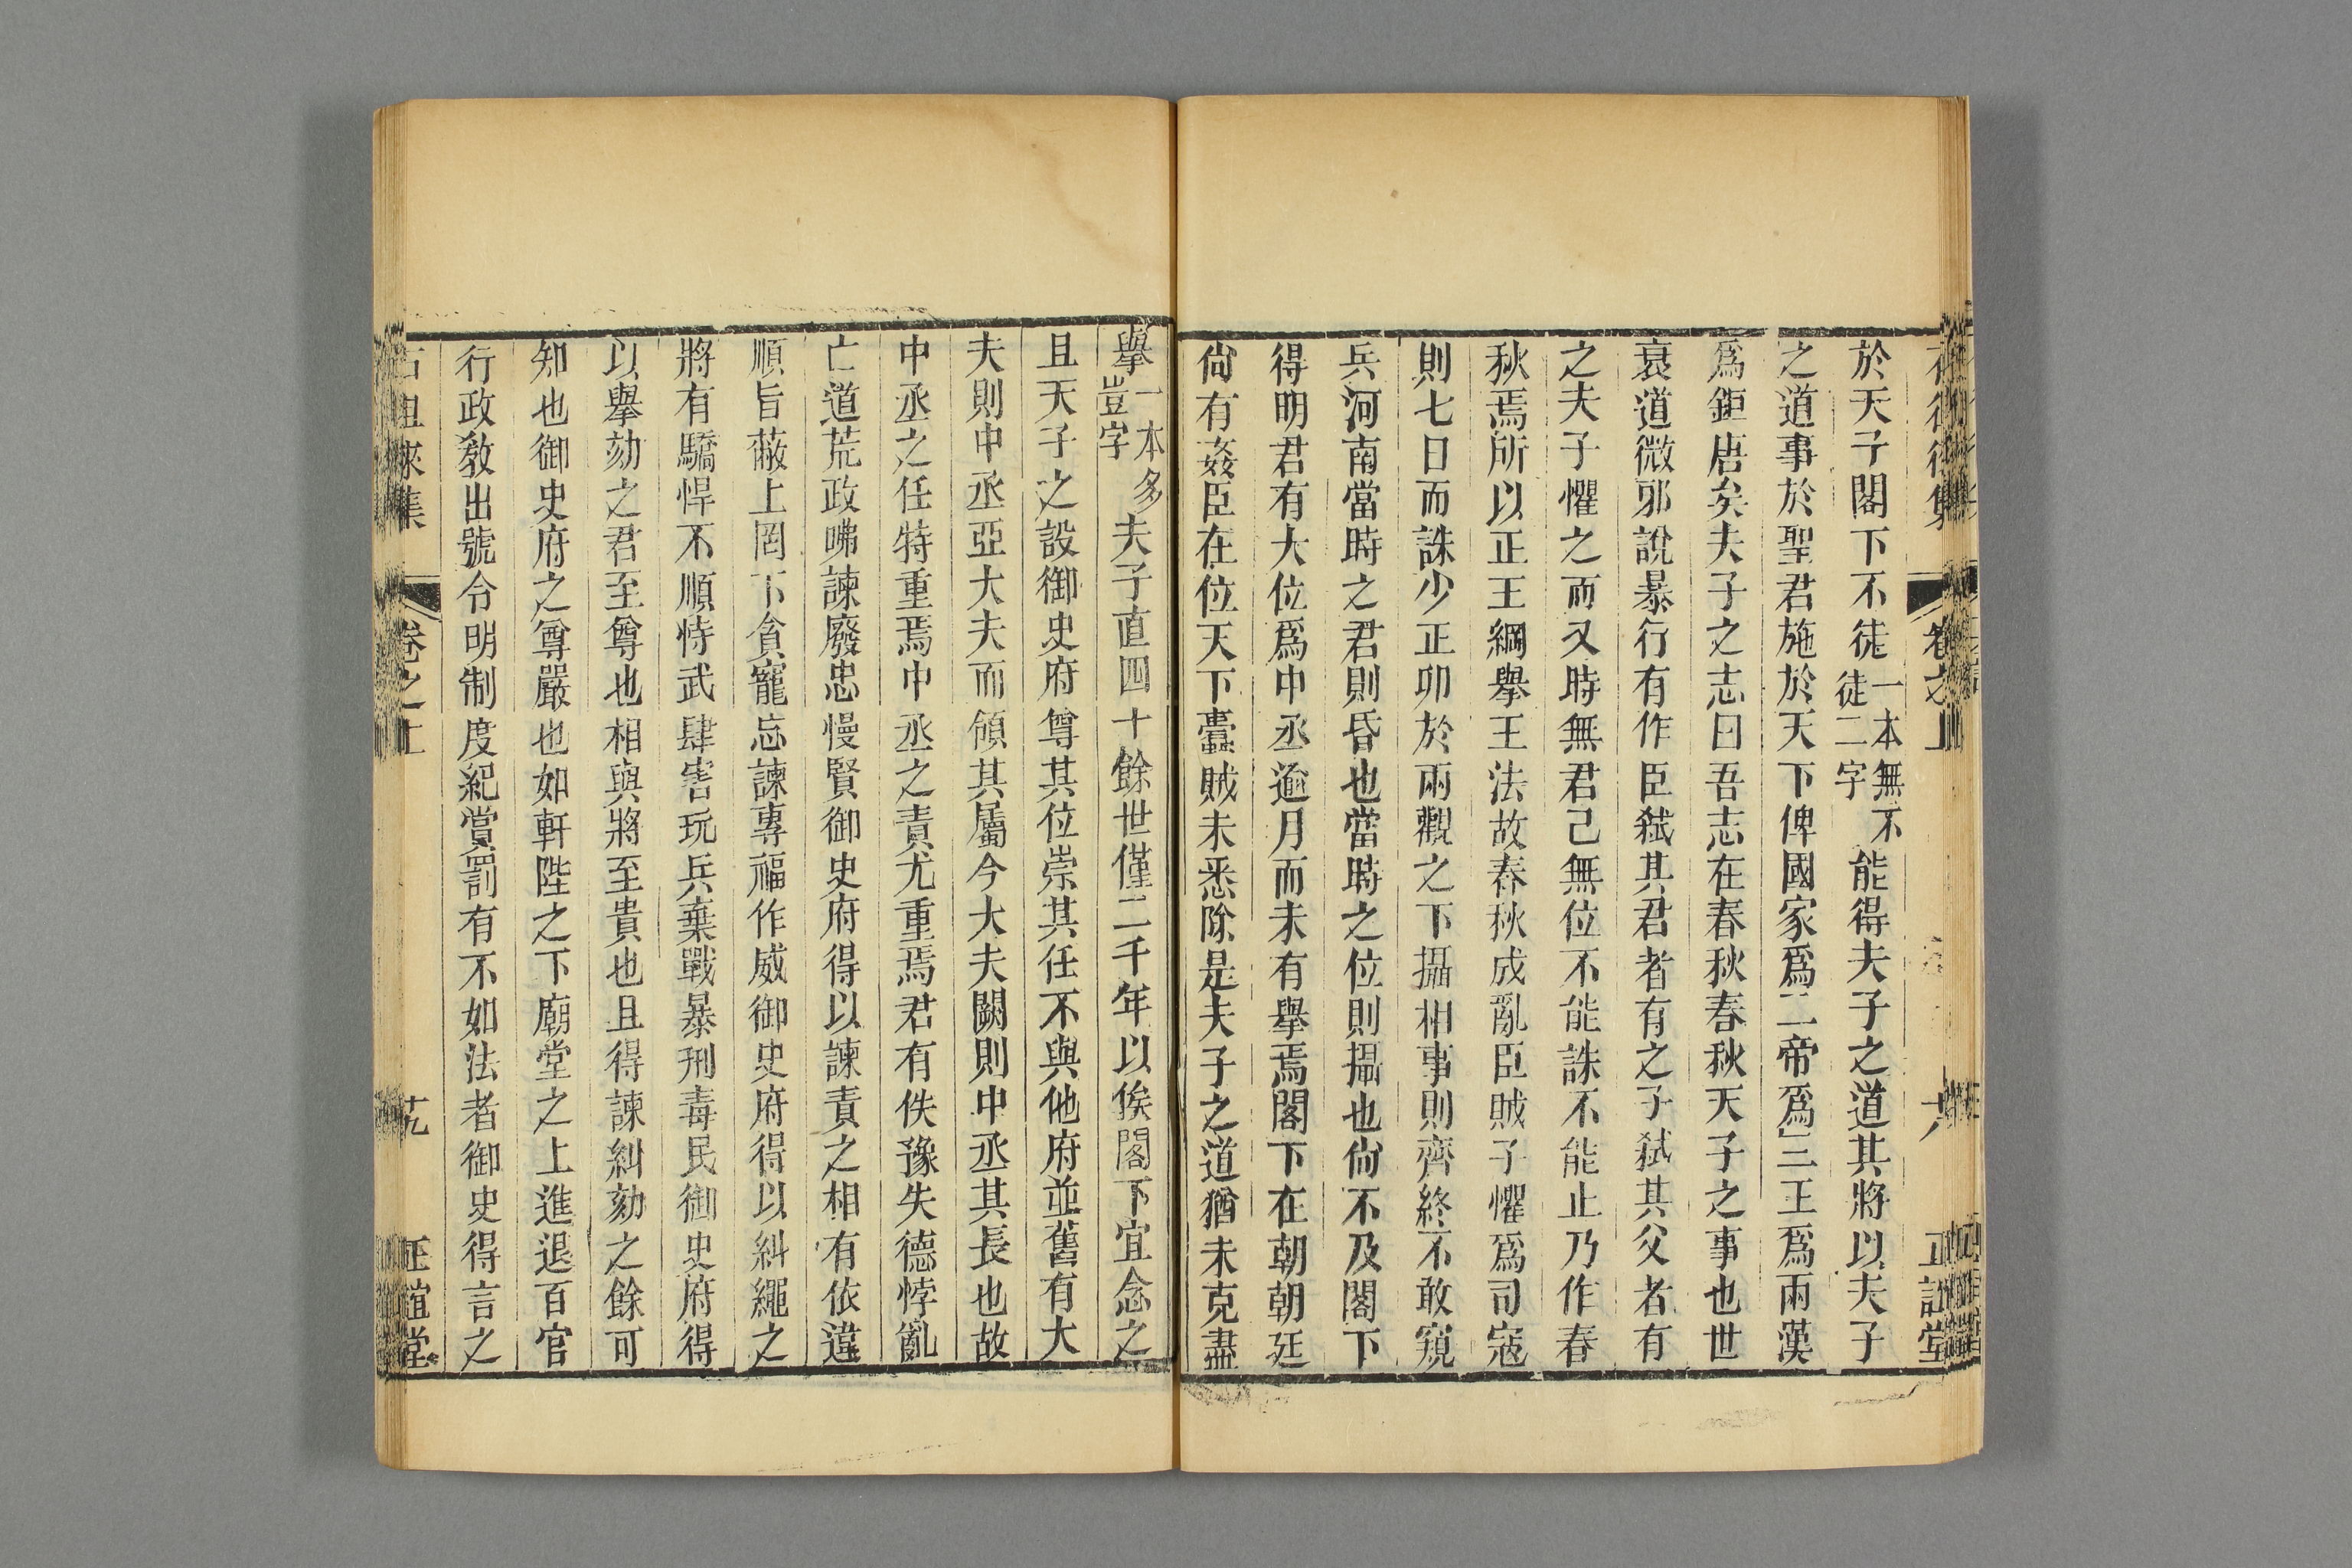 於天子閣下不徒一本無不徒二字能得夫子之道其將以夫子
之道事於聖君施於天下俾國家爲二帝爲三王爲兩漢
爲鉅唐矣夫子之志曰吾志在春秋春秋天子之事也世
衰道微邪說暴行有作臣弒其君者有之子弒其父者有
之夫子懼之而又時無君己無位不能誅不能止乃作春
秋焉所以正王綱舉王法故春秋成亂臣賊子懼爲司寇
則七日而誅少正卯於兩觀之下攝相事則齊終不敢窺
兵河南當時之君則昏也當時之位則攝也尙不及閣下
得明君有大位爲中丞逾月而未有舉焉閣下在朝朝廷
尙有姦臣在位天下蠹賊未悉除是夫子之道猶未克盡
舉一本多豈字夫子直四十餘世僅二千年以俟閣下宜念之
且天子之設御史府尊其位崇其任不與他府並舊有大
夫則中丞亞大夫而領其屬今大夫闕則中丞其長也故
中丞之任特重焉中丞之責尤重焉君有佚豫失德悖亂
亡道荒政咈諫廢忠慢賢御史府得以諫責之相有依違
順旨蔽上罔下貪寵忘諫專福作威御史府得以糾繩之
將有驕悍不順恃武肆害玩兵棄戰暴刑毒民御史府得
以舉劾之君至尊也相與將至貴也且得諫糾劾之餘可
知也御史府之尊嚴也如軒陛之下廟堂之上進退百官
行政敎出號令明制度紀賞罰有不如法者御史得言之
石徂徠集 卷之上 九 正誼堂